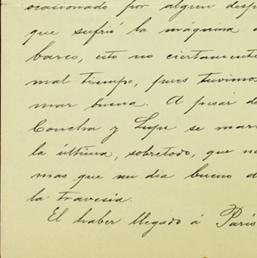 ocasionado por algun desp
que sufrió la máquina d
barco, esto no ciertamente
mal tiempo, pues tuvimos
mar buena. A pesar de
Concha y Lupe se mar
la última, sobretodo, que no
mas que un dia bueno d
la travesía.
El haber llegado á Paris